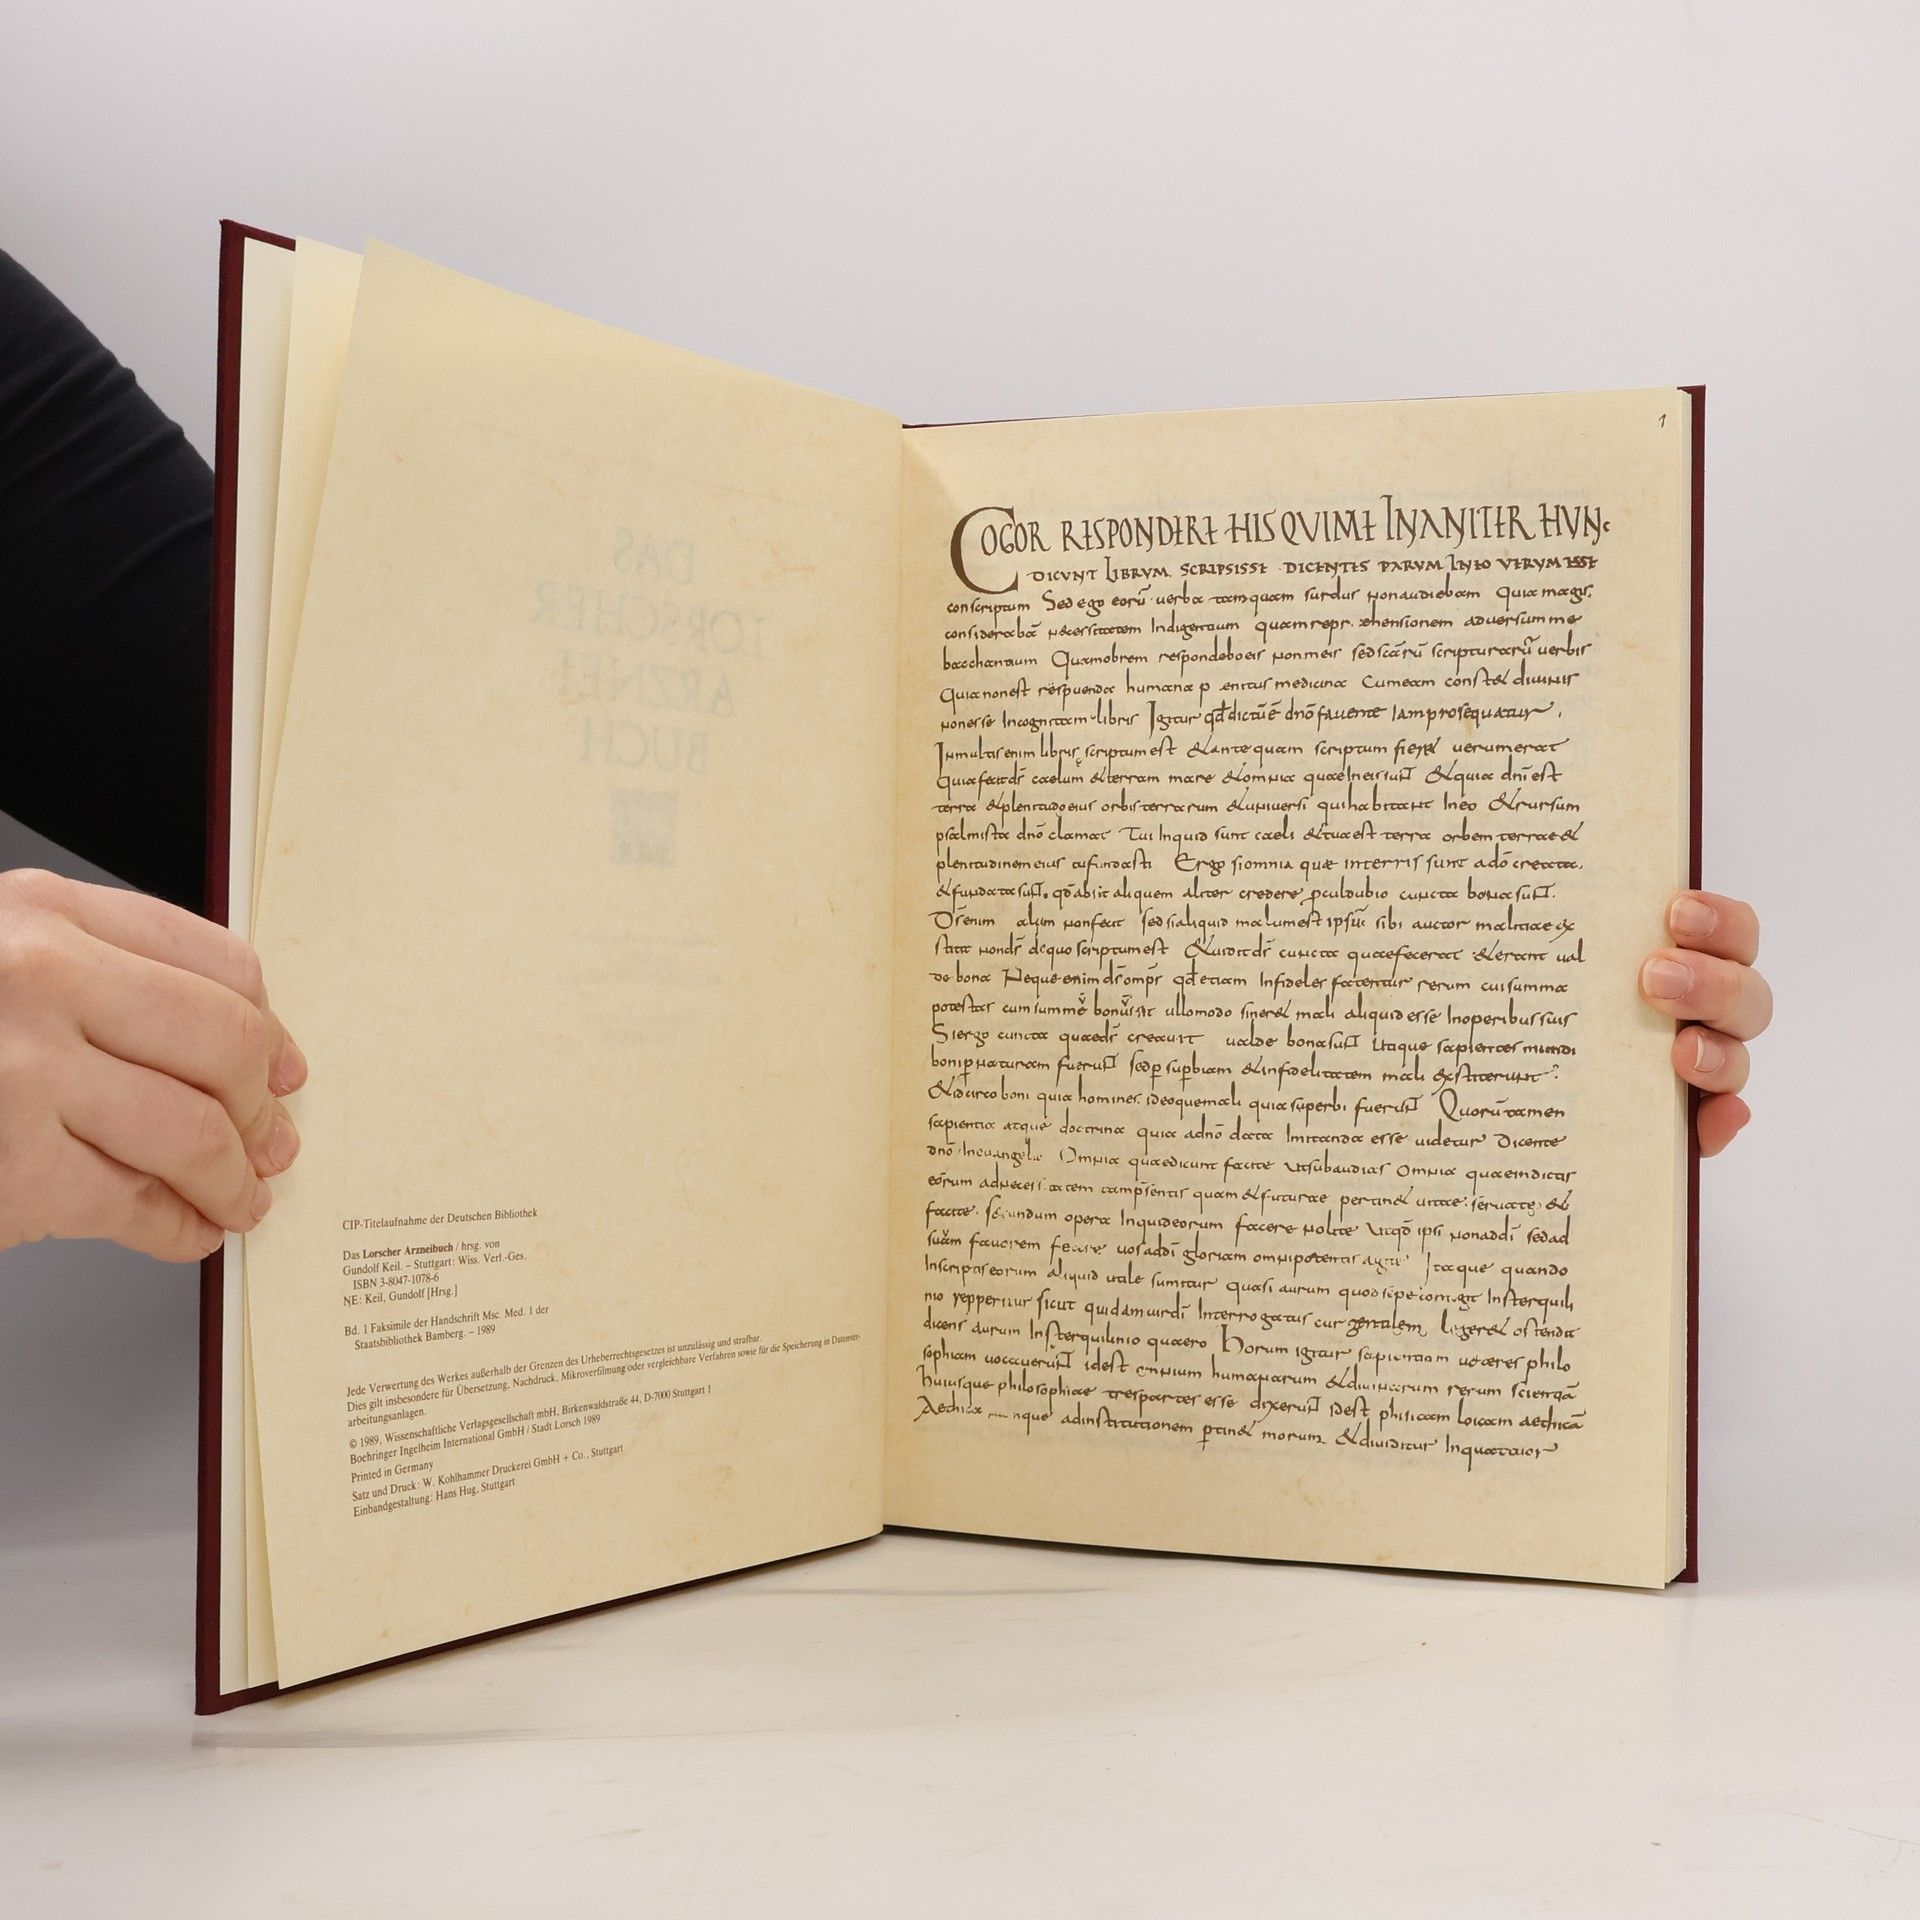 CIP-Titelaufnahme der Deutschen Bibliothek
Das Lorscher Arzneibuch / hrsg. von
Gundolf Keil. – Stuttgart: Wiss. Verl.-Ges.
ISBN 3-8047-1078-6
NE: Keil, Gundolf [Hrsg.]
Bd. 1 Faksimile der Handschrift Msc. Med. 1 der
Staatsbibliothek Bamberg. – 1989
Jede Verwertung des Werkes außerhalb der Grenzen des Urheberrechtsgesetzes ist unzulässig und strafbar.
Dies gilt insbesondere für Übersetzung, Nachdruck, Mikroverfilmung oder vergleichbare Verfahren sowie für die Speicherung in Datenver-
arbeitungsanlagen.
© 1989, Wissenschaftliche Verlagsgesellschaft mbH, Birkenwaldstraße 44, D-7000 Stuttgart 1
Boehringer Ingelheim International GmbH / Stadt Lorsch 1989
Printed in Germany
Satz und Druck: W. Kohlhammer Druckerei GmbH + Co., Stuttgart
Einbandgestaltung: Hans Hug, Stuttgart
1
COGOR RESPONDERE HIS QVIME INANITER HVNC
DICVNT LIBRVM SCRIPSISSE DICENTES PARVM INEO VERVM ESSE
conscriptum Sed ego eorū uerba tamquam surdus non audiebam Quia magis
considerabā necessitatem Indigentium quam repr ehensionem aduersum me
bacchantium Quamobrem respondebo eis non meis sed scārū scripturarū uerbis
Quia non est respuenda humana p enitus medicina Cum eam constet diuinis
non esse Incognitam libris Igitur qđ dictū ē dnō fauente Iam prosequatur
In multis enim libris scriptum est & antequam scriptum fieret uerum erat
Quia fecit ds̄ caelum & terram mare & omnia quae In eis sunt & quia dnī est
terra & plenitudo eius orbis terrarum & uniuersi qui habitant In eo & rursum
psalmista dnō clamat Tui Inquid sunt caeli & tua est terra orbem terrae &
plenitudinem eius tu fundasti Ergo si omnia quae in terris sunt a dō creata
& fundata sunt qđ absit aliquem aliter credere proculdubio cuncta bona sunt
Ds̄ enim malum non fecit sed si aliquid malum est ipsū sibi auctor malitiae ex
stitit non ds̄ de quo scriptum est & uidit ds̄ cuncta quae fecerat & erant ual
de bona Neque enim ds̄ omps̄ qđ etiam Infideles fatentur rerum cui summa
potestas cum summe bonus sit ullo modo sineret mali aliquid esse In operibus suis
Si ergo cuncta quae ds̄ creauit ualde bona sunt Itaque sapientes mundi
boni p naturam fuerunt sed p supbiam & infidelitatem mali exstiterunt
& idcirco boni quia homines ideoque mali quia superbi fuerunt Quorū tamen
sapientia atque doctrina quia a dnō data Imitanda esse uidetur Dicente
dnō In euangelio Omnia quae dicunt facite Ut subaudias Omnia quae in dictis
eorum ad necessitatem tam psentis quam & futurae pertinet uitae seruate &
facite Secundum opera Inquid eorum facere nolite Utiqȝ ipsi non ad dī sed ad
suam fauorem uos ad dī gloriam omnipotentis agite Itaque quando
In scriptis eorum aliquid utile sumitur quasi aurum quod sepe contigit In sterquili
nio repperitur sicut quidam uir dī Interrogatus cur gentilem legeret ostendit
dicens aurum In sterquilinio quaero Horum igitur sapientiam ueteres philo
sophiam uocauerunt idest omnium humanarum & diuinarum rerum scientiā
huiusque philosophiae tres partes esse dixerunt idest phisicam loicam aethicā
Aethica ad institutionem ptinet morum & diuiditur In quattuor